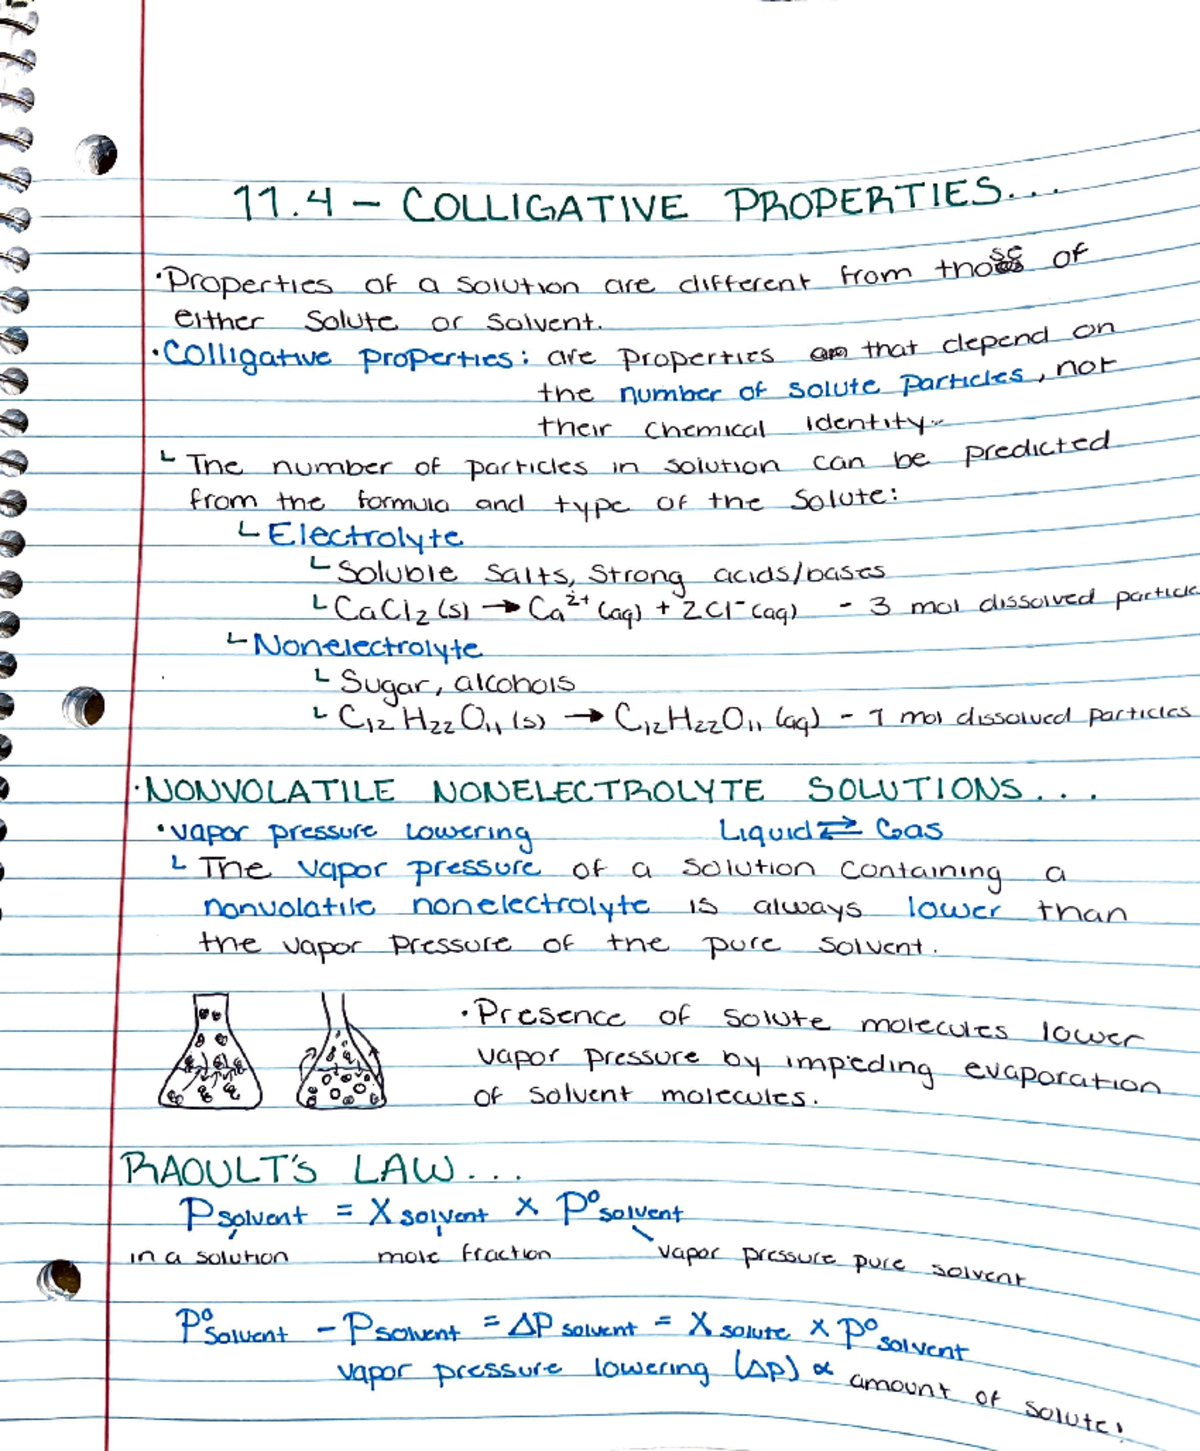 11.4 - COLLIGATIVE PROPERTIES...
·Properties of a solution are different from those of
either solute or solvent.
·Colligative properties: are properties that depend on
the number of solute particles, not
their chemical identity.
└ The number of particles in solution can be predicted
from the formula and type of the solute:
└ Electrolyte
└ Soluble salts, strong acids/bases
└ CaCl₂ (s) → Ca²⁺ (aq) + 2Cl⁻ (aq) - 3 mol dissolved particle
└ Nonelectrolyte
└ Sugar, alcohols
└ C₁₂H₂₂O₁₁ (s) → C₁₂H₂₂O₁₁ (aq) - 1 mol dissolved particles
·NONVOLATILE NONELECTROLYTE SOLUTIONS...
·vapor pressure lowering Liquid ⇄ Gas
└ The vapor pressure of a solution containing a
nonvolatile nonelectrolyte is always lower than
the vapor pressure of the pure solvent.
·Presence of solute molecules lower
vapor pressure by impeding evaporation
of solvent molecules.
RAOULT'S LAW...
Psolvent = Xsolvent × P°solvent
in a solution mole fraction vapor pressure pure solvent
P°solvent - Psolvent = ΔPsolvent = Xsolute × P°solvent
vapor pressure lowering (ΔP) ∝ amount of solute.